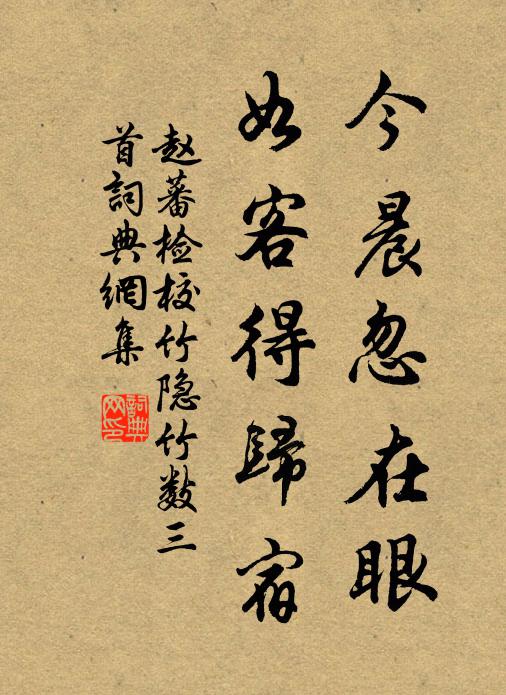 今晨忽在眼
如客得歸宿
赵蕃检校竹隐竹数三
首詞典網集
詞典
网印